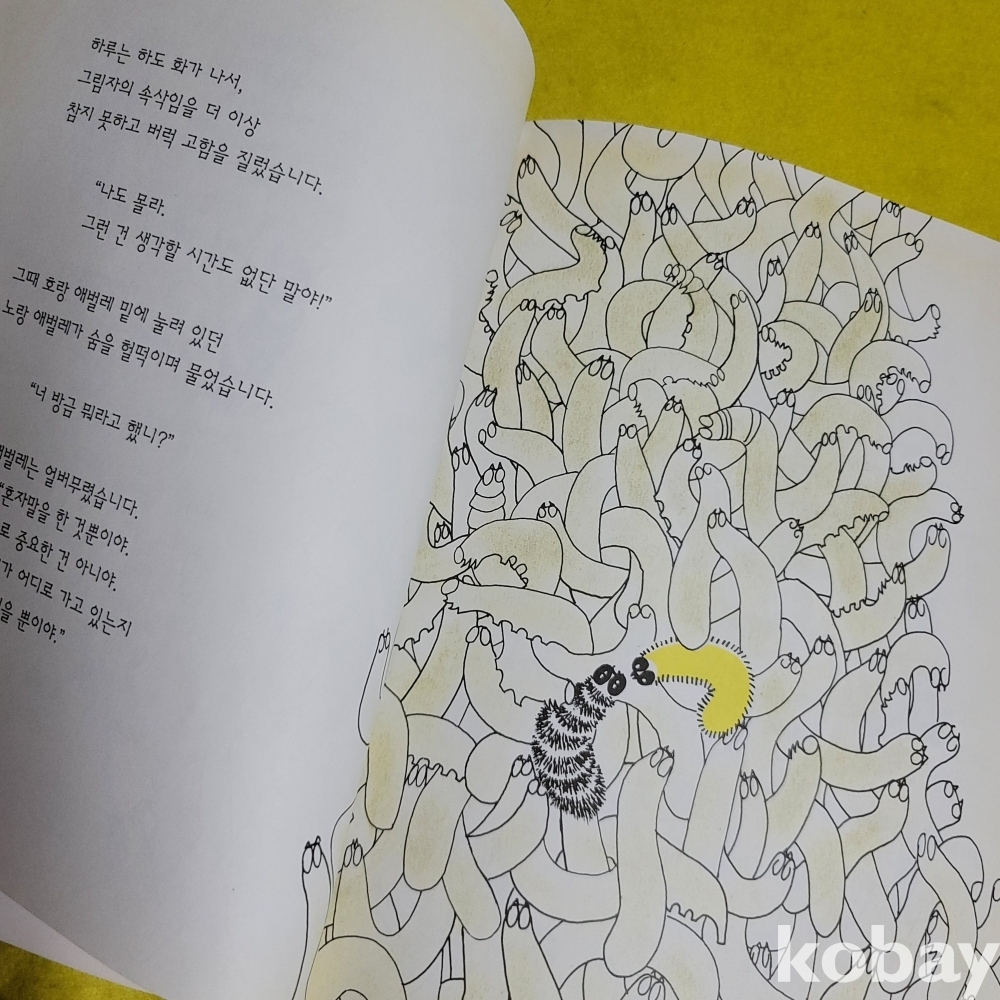 하루는 하도 화가 나서,
그림자의 속삭임을 더 이상
참지 못하고 버럭 고함을 질렀습니다.
“나도 몰라.
그런 건 생각할 시간도 없단 말야!”
그때 호랑 애벌레 밑에 눌려 있던
노랑 애벌레가 숨을 헐떡이며 물었습니다.
“너 방금 뭐라고 했니?”
얼버무렸습니다.
“혼자말을 한 것뿐이야.
중요한 건 아니야.
어디로 가고 있는지
뿐이야.”
kobay